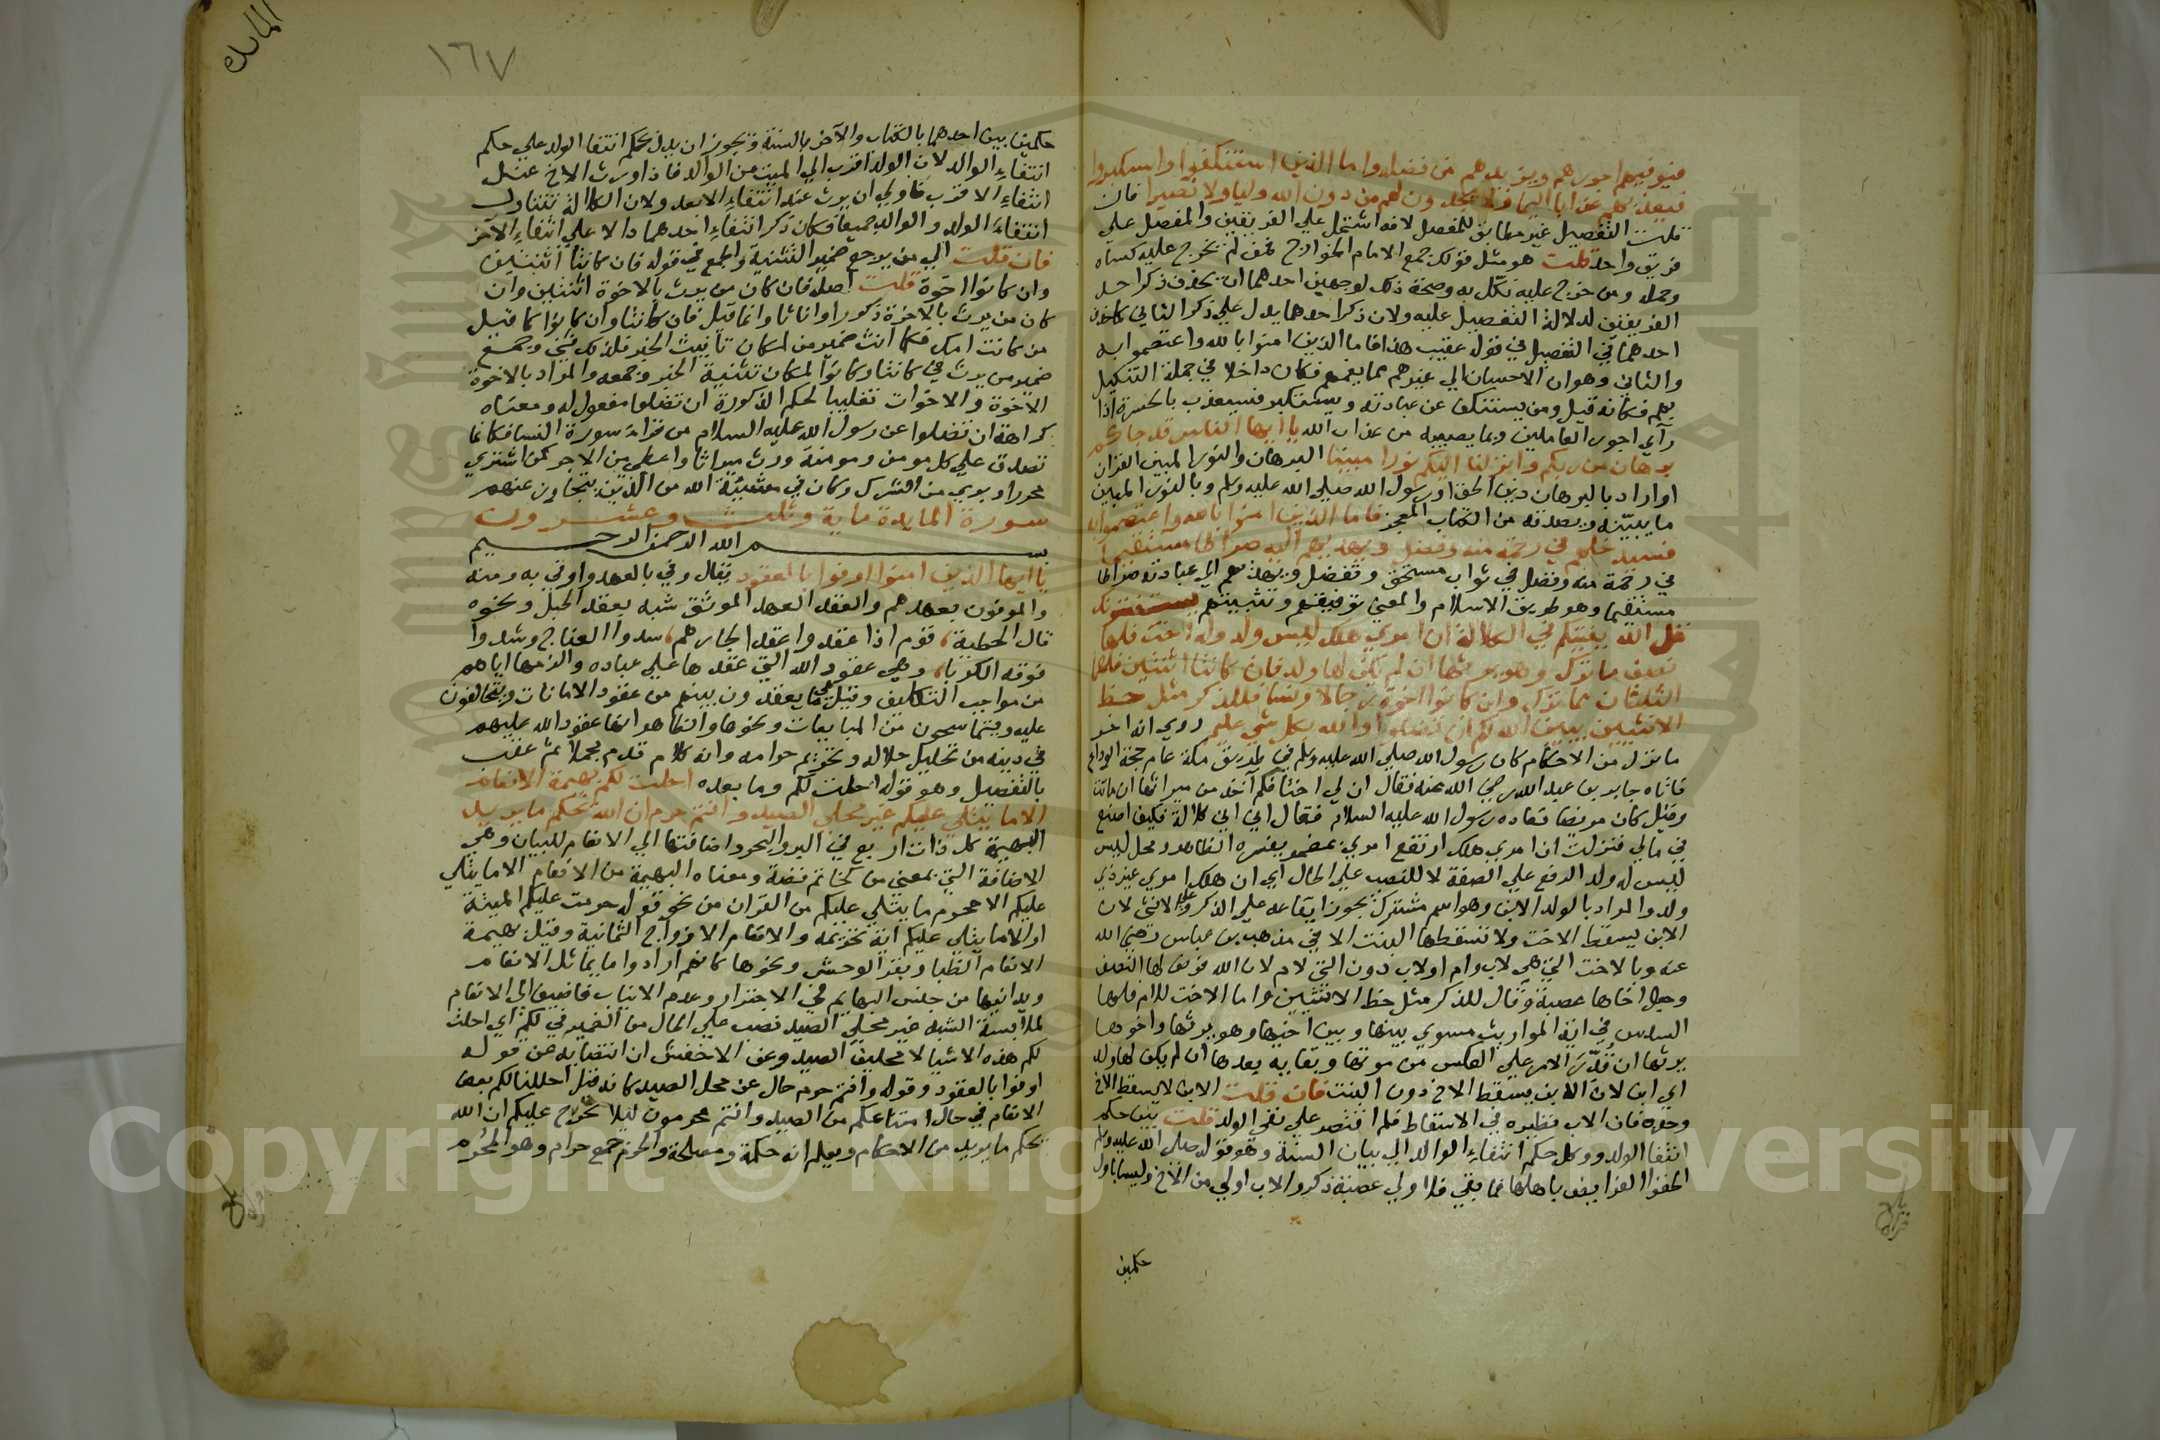 فيوفيهم اجورهم ويزيدهم من فضله واما الذين استنكفوا واستكبروا
فيعذبهم عذابا اليما ولا يجدون لهم من دون الله وليا ولا نصيرا فان
قلت التفصيل غير مطابق للمفصل لانه اشتمل على الفريقين والمفصل على
فريق واحد قلت هو مثل قولك جمع الامام الخوارج فمن لم يخرج عليه كساه
وحمله ومن خرج عليه نكل به وصحة ذلك لوجهين احدهما ان يحذف ذكر احد
الفريقين لدلالة التفصيل عليه ولان ذكر احدهما يدل علي ذكر الثاني كما حذف
احدهما في التفصيل في قوله عقيب هذا فاما الذين امنوا بالله واعتصموا به
والثاني وهو ان الاحسان الي غيرهم مما يغمهم فكان داخلا في جملة التنكيل
بهم فكانه قيل ومن يستنكف عن عبادته ويستكبر فسيعذب بالحسرة اذا
رآي اجور العاملين وبما يصيبه من عذاب الله يا ايها الناس قد جاكم
برهان من ربكم وانزلنا اليكم نورا مبينا البرهان والنور المبين القران
او اراد بالبرهان دين الحق او رسول الله صلي الله عليه وسلم وبالنور المبين
ما يبينه ويصدقه من الكتاب المعجز فاما الذين امنوا بالله واعتصموا به
فسيدخلهم في رحمة منه وفضل ويهديهم اليه صراطا مستقيما
في رحمة منه وفضل في ثواب مستحق وتفضل ويهديهم الي عبادته صراطا
مستقيما وهو طريق الاسلام والمعني توفيقهم وتثبيتهم يستفتونك
قل الله يفتيكم في الكلالة ان امرؤ هلك ليس له ولد وله اخت فلها
نصف ما ترك وهو يرثها ان لم يكن لها ولد فان كانتا اثنتين فلهما
الثلثان مما ترك وان كانوا اخوة رجالا ونسا فللذكر مثل حظ
الانثيين يبين الله لكم ان تضلوا والله بكل شي عليم روي انه اخر
ما نزل من الاحكام كان رسول الله صلي الله عليه وسلم في طريق مكة عام حجة الوداع
فاتاه جابر بن عبد الله رضي الله عنه فقال ان لي اختا فكم آخذ من ميراثها ان ماتت
وقيل كان مريضا فعاده رسول الله عليه السلام فقال اني كلالة فكيف اصنع
في مالي فنزلت ان امرؤ هلك ارتفع امرؤ بمضمر يفسره الظاهر ومحل ليس
ليس له ولد الرفع علي الصفة لا للنصب علي الحال أي ان هلك امرؤ غير ذي
ولد والمراد بالولد الابن وهو اسم مشترك يجوز ايقاعه علي الذكر وعلي الانثى لان
الابن يسقط الاخت ولا تسقطها البنت الا في مذهب بن عباس رضي الله
عنه وبالاخت التي هي لاب وام او لاب دون التي لام لان الله فرض لها النصف
وجعل اخاها عصبة وقال للذكر مثل حظ الانثيين واما الاخت للام فلها
السدس في اية المواريث مسوي بينها وبين اخيها وهو يرثها واخوها
يرثها ان قدر الامر علي العكس من موتها وبقايه بعدها ان لم يكن لها ولد
اي ابن لان الابن يسقط الاخ دون البنت فان قلت الابن لا يسقط الاخ
وحده فان الاب نظيره في الاسقاط فلم اقتصر علي نفي الولد قلت بين حكم
انتفا الولد ووكل حكم انتفاء الوالد الي بيان السنة وهو قوله صلى الله عليه وسلم
الحقوا الفرايض باهلها فما بقي فلاولي عصبة ذكر والاب اولي من الاخ وليسا باول
حكمين
١٦٧
حكمين بين احدهما بالكتاب والآخر بالسنة ويجوز ان يدل بحكم انتفا الولد علي حكم
انتفاء الوالد لان الولد اقرب الي الميت من الوالد فاذا ورث الاخ عند
انتفاء الاقرب فاولي ان يرث عند انتفاء الابعد ولان الكلالة تتناول
انتفاء الولد والوالد جميعا فكان ذكر انتفاء احدهما دالا علي انتفاء الآخر
فان قلت الي من يرجع ضمير التثنية والجمع في قوله فان كانتا اثنتين
وان كانوا اخوة قلت اصله فان كان من يرث بالاخوة اثنتين وان
كان من يرث بالاخوة ذكورا واناثا وانما قيل فان كانتا وان كانوا كما قيل
من كانت امك فكما انث ضمير من لمكان تانيث الخبر فلذلك ثني وجمع
ضمير من يرث في كانتا وكانوا لمكان تثنية الخبر وجمعه والمراد بالاخوة
الاخوة والاخوات تغليبا لحكم الذكورة ان تضلوا مفعول له ومعناه
كراهة ان تضلوا عن رسول الله عليه السلام من قراء سورة النسا فكانما
تصدق علي كل مومن ومومنة ورث ميراثا واعطي من الاجر كمن اشتري
محررا وبري من الشرك وكان في مشيئة الله من الذين يتجاوز عنهم
سورة المايدة ماية وثلث وعشرون
بسم الله الرحمن الرحيم
يا ايها الذين امنوا اوفوا بالعقود يقال وفي بالعهد واوفي به ومنه
والموفون بعهدهم والعقد العهد الموثق شبه بعقد الحبل ونحوه
قال الحطية قوم اذا عقدوا عقدا لجارهم شدوا العناج وشدوا
فوقه الكربا وهي عقود الله التي عقدها علي عباده والزمها اياهم
من مواجب التكليف وقيل هي ما يعقدون بينهم من عقود الامانات ويتحالفون
عليه ويتماسحون من المبايعات ونحوها والظاهر انها عقود الله عليهم
في دينه من تحليل حلاله وتحريم حرامه وانه كلام قدم مجملا ثم عقب
بالتفصيل وهو قوله احلت لكم وما بعده احلت لكم بهيمة الانعام
الا ما يتلي عليكم غير محلي الصيد وانتم حرم ان الله يحكم ما يريد
البهيمة كل ذات اربع في البر والبحر واضافتها الي الانعام للبيان وهي
الاضافة التي بمعني من كخاتم فضة ومعناه البهيمة من الانعام الا ما يتلي
عليكم الا محرم ما يتلي عليكم من القران من نحو قوله حرمت عليكم الميتة
او الا ما يتلي عليكم اية تحريمه والانعام الازواج الثمانية وقيل بهيمة
الانعام الظبا وبقر الوحش ونحوها كانهم ارادوا ما يماثل الانعام
ويدانيها من جنس البهايم في الاجترار وعدم الانياب فاضيف الي الانعام
لملابسة الشبه غير محلي الصيد نصب علي الحال من الضمير في لكم أي احلت
لكم هذه الاشيا لا محلين الصيد وعن الاخفش ان انتصابه عن قوله
اوفوا بالعقود وقوله وانتم حرم حال عن محل الصيد كانه قيل احللنا لكم بعض
الانعام في حال امتناعكم من الصيد وانتم محرمون ليلا نحرج عليكم ان الله
يحكم ما يريد من الاحكام ويعلم انه حكمة ومصلحة والحرم جمع حرام وهو المحرم
Copyright © King
versity